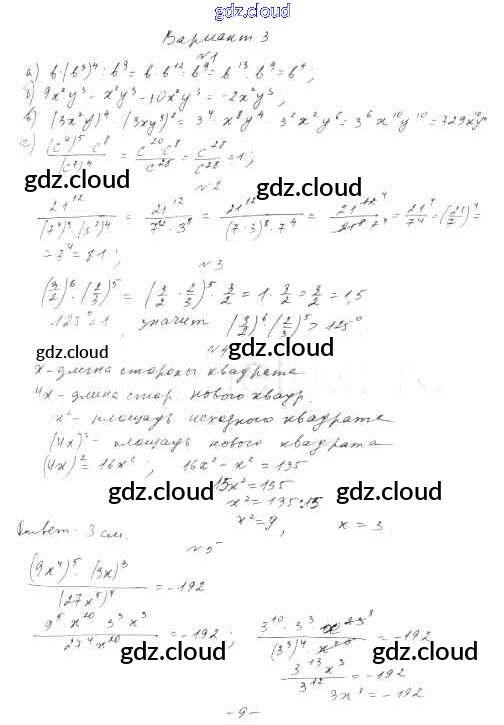 gdz.cloud
Вариант 3
№1
а) b·(b³)⁴ : b⁹ = b·b¹² : b⁹ = b¹³ : b⁹ = b⁴;
б) 9x²y³ - x²y³ - 10x²y³ = -2x²y³;
в) (3x²y)⁴ · (3xy³)² = 3⁴ · x⁸y⁴ · 3²x²y⁶ = 3⁶x¹⁰y¹⁰ = 729x¹⁰y¹⁰
г) (c⁴)⁵ c⁸ / (c⁷)⁴ = c²⁰c⁸ / c²⁸ = c²⁸ / c²⁸ = 1;
gdz.cloud gdz.cloud
№2
21¹² / (7⁴)³ · (3²)⁴ = 21¹² / 7¹² · 3⁸ = 21¹² / (7·3)⁸ · 7⁴ = 21¹² ⁴ / 21⁸ 7⁴ = 21⁴ / 7⁴ = (21/7)⁴ =
= 3⁴ = 81;
gdz.cloud gdz.cloud
№3
(3/2)⁶ · (2/3)⁵ = (3/2 · 2/3)⁵ · 3/2 = 1 · 3/2 = 3/2 = 1,5
125⁰ = 1, значит (3/2)⁶ · (2/3)⁵ > 125⁰.
№4
gdz.cloud gdz.cloud
x - длина стороны квадрата
4x - длина стор. нового квадр.
x² - площадь исходного квадрата
gdz.cloud gdz.cloud
(4x)² - площадь нового квадрата
(4x)² = 16x²; 16x² - x² = 135
15x² = 135
gdz.cloud gdz.cloud
x² = 135:15
x² = 9, x = 3.
Ответ: 3 см.
№5
(9x⁴)⁵ · (3x)³ / (27x⁵)⁴ = -192
gdz.cloud gdz.cloud
9⁵ x²⁰ · 3³ x³ / 27⁴ x²⁰ = -192; 3¹⁰ · 3³ x²³ ³ / (3³)⁴ · x²⁰ = -192
gdz.cloud gdz.cloud
3¹³ x³ / 3¹² = -192
3x³ = -192
- 9 -